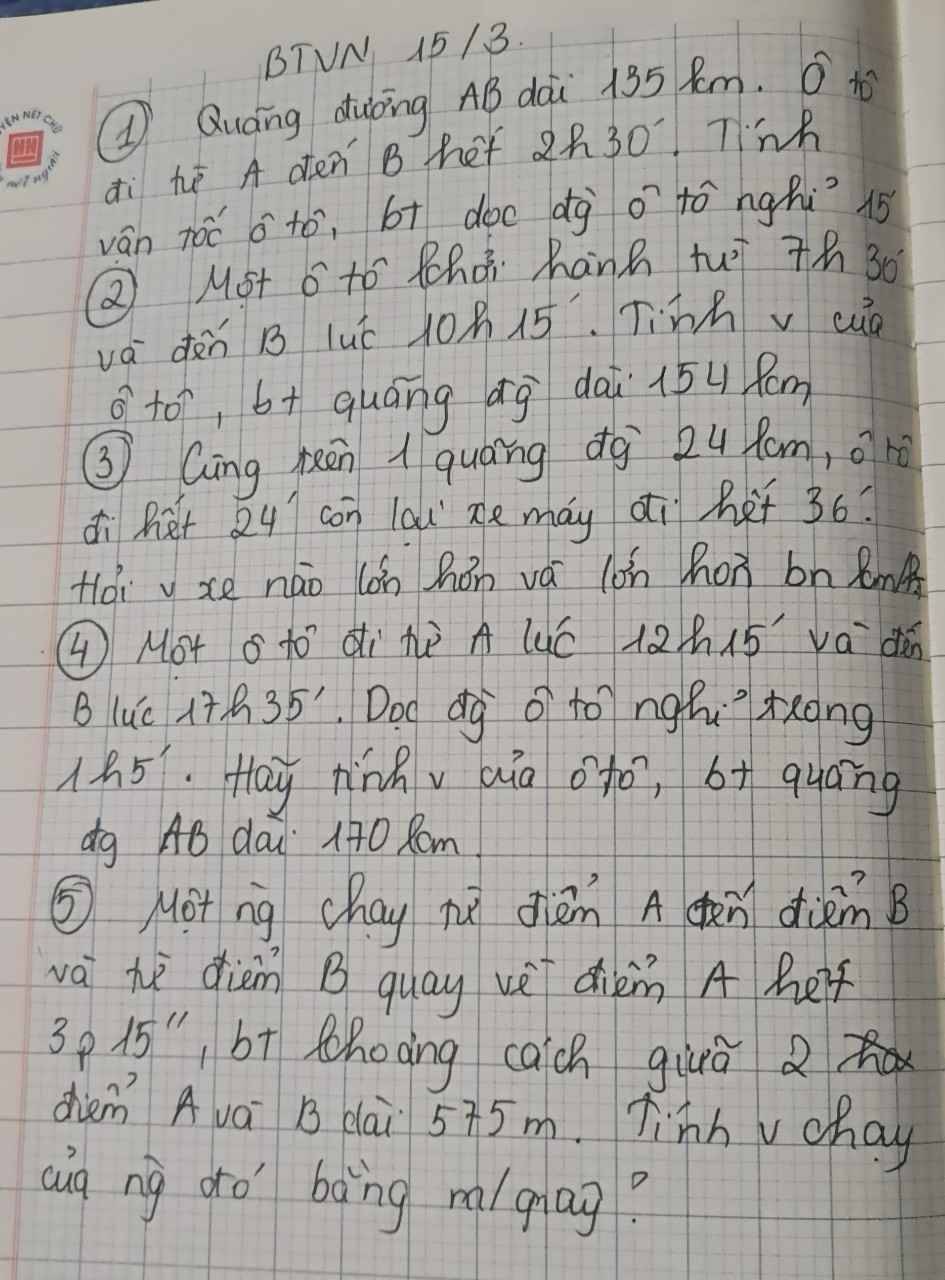 BTVN 15/3.
① Quãng đường AB dài 135 km. Ô tô
đi từ A đến B hết 2h30'. Tính
vận tốc ô tô, bt dọc đg ô tô nghỉ 15'
② Một ô tô khởi hành từ 7h 30'
và đến B lúc 10h15'. Tính v của
ô tô, bt quãng đg dài 154 km
③ Cùng trên 1 quãng đg 24 km, ô tô
đi hết 24' còn lại xe máy đi hết 36'.
Hỏi v xe nào lớn hơn và lớn hơn bn km/h
④ Một ô tô đi từ A lúc 12h15' và đến
B lúc 17h35'. Dọc đg ô tô nghỉ trong
1h5'. Hãy tính v của ô tô, bt quãng
đg AB dài 170 km.
⑤ Một ng chạy từ điểm A đến điểm B
và từ điểm B quay về điểm A hết
3p 15", bt khoảng cách giữa 2
điểm A và B dài 575m. Tính v chạy
của ng đó bằng m/giây?